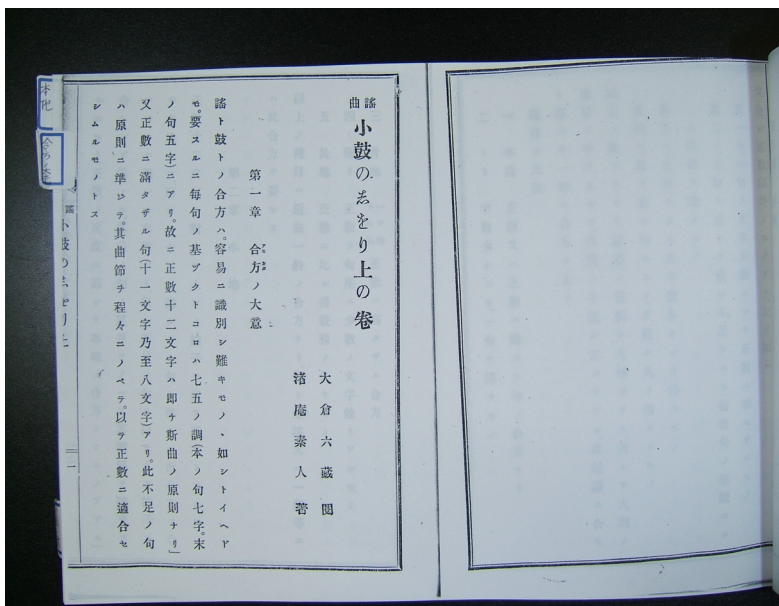 謠曲 小鼓のしをり上の卷
大倉六藏閱
渚庵素人著
第一章 合方ノ大意
謠ト鼓トノ合方ハ。容易ニ識別シ難キモノヽ如シトイヘド
モ。要スルニ每句ノ基ヅクトコロハ七五ノ調(本ノ句七字。末
ノ句五字)ニアリ。故ニ正數十二文字ハ卽チ斯曲ノ原則ナリ」
又正數ニ滿タザル句(十一文字乃至八文字)アリ。此不足ノ句
ハ原則ニ準ジテ。其曲節チ程々ニノベテ。以テ正數ニ適合セ
シムルモノトス
謠 小鼓のしをり上
一